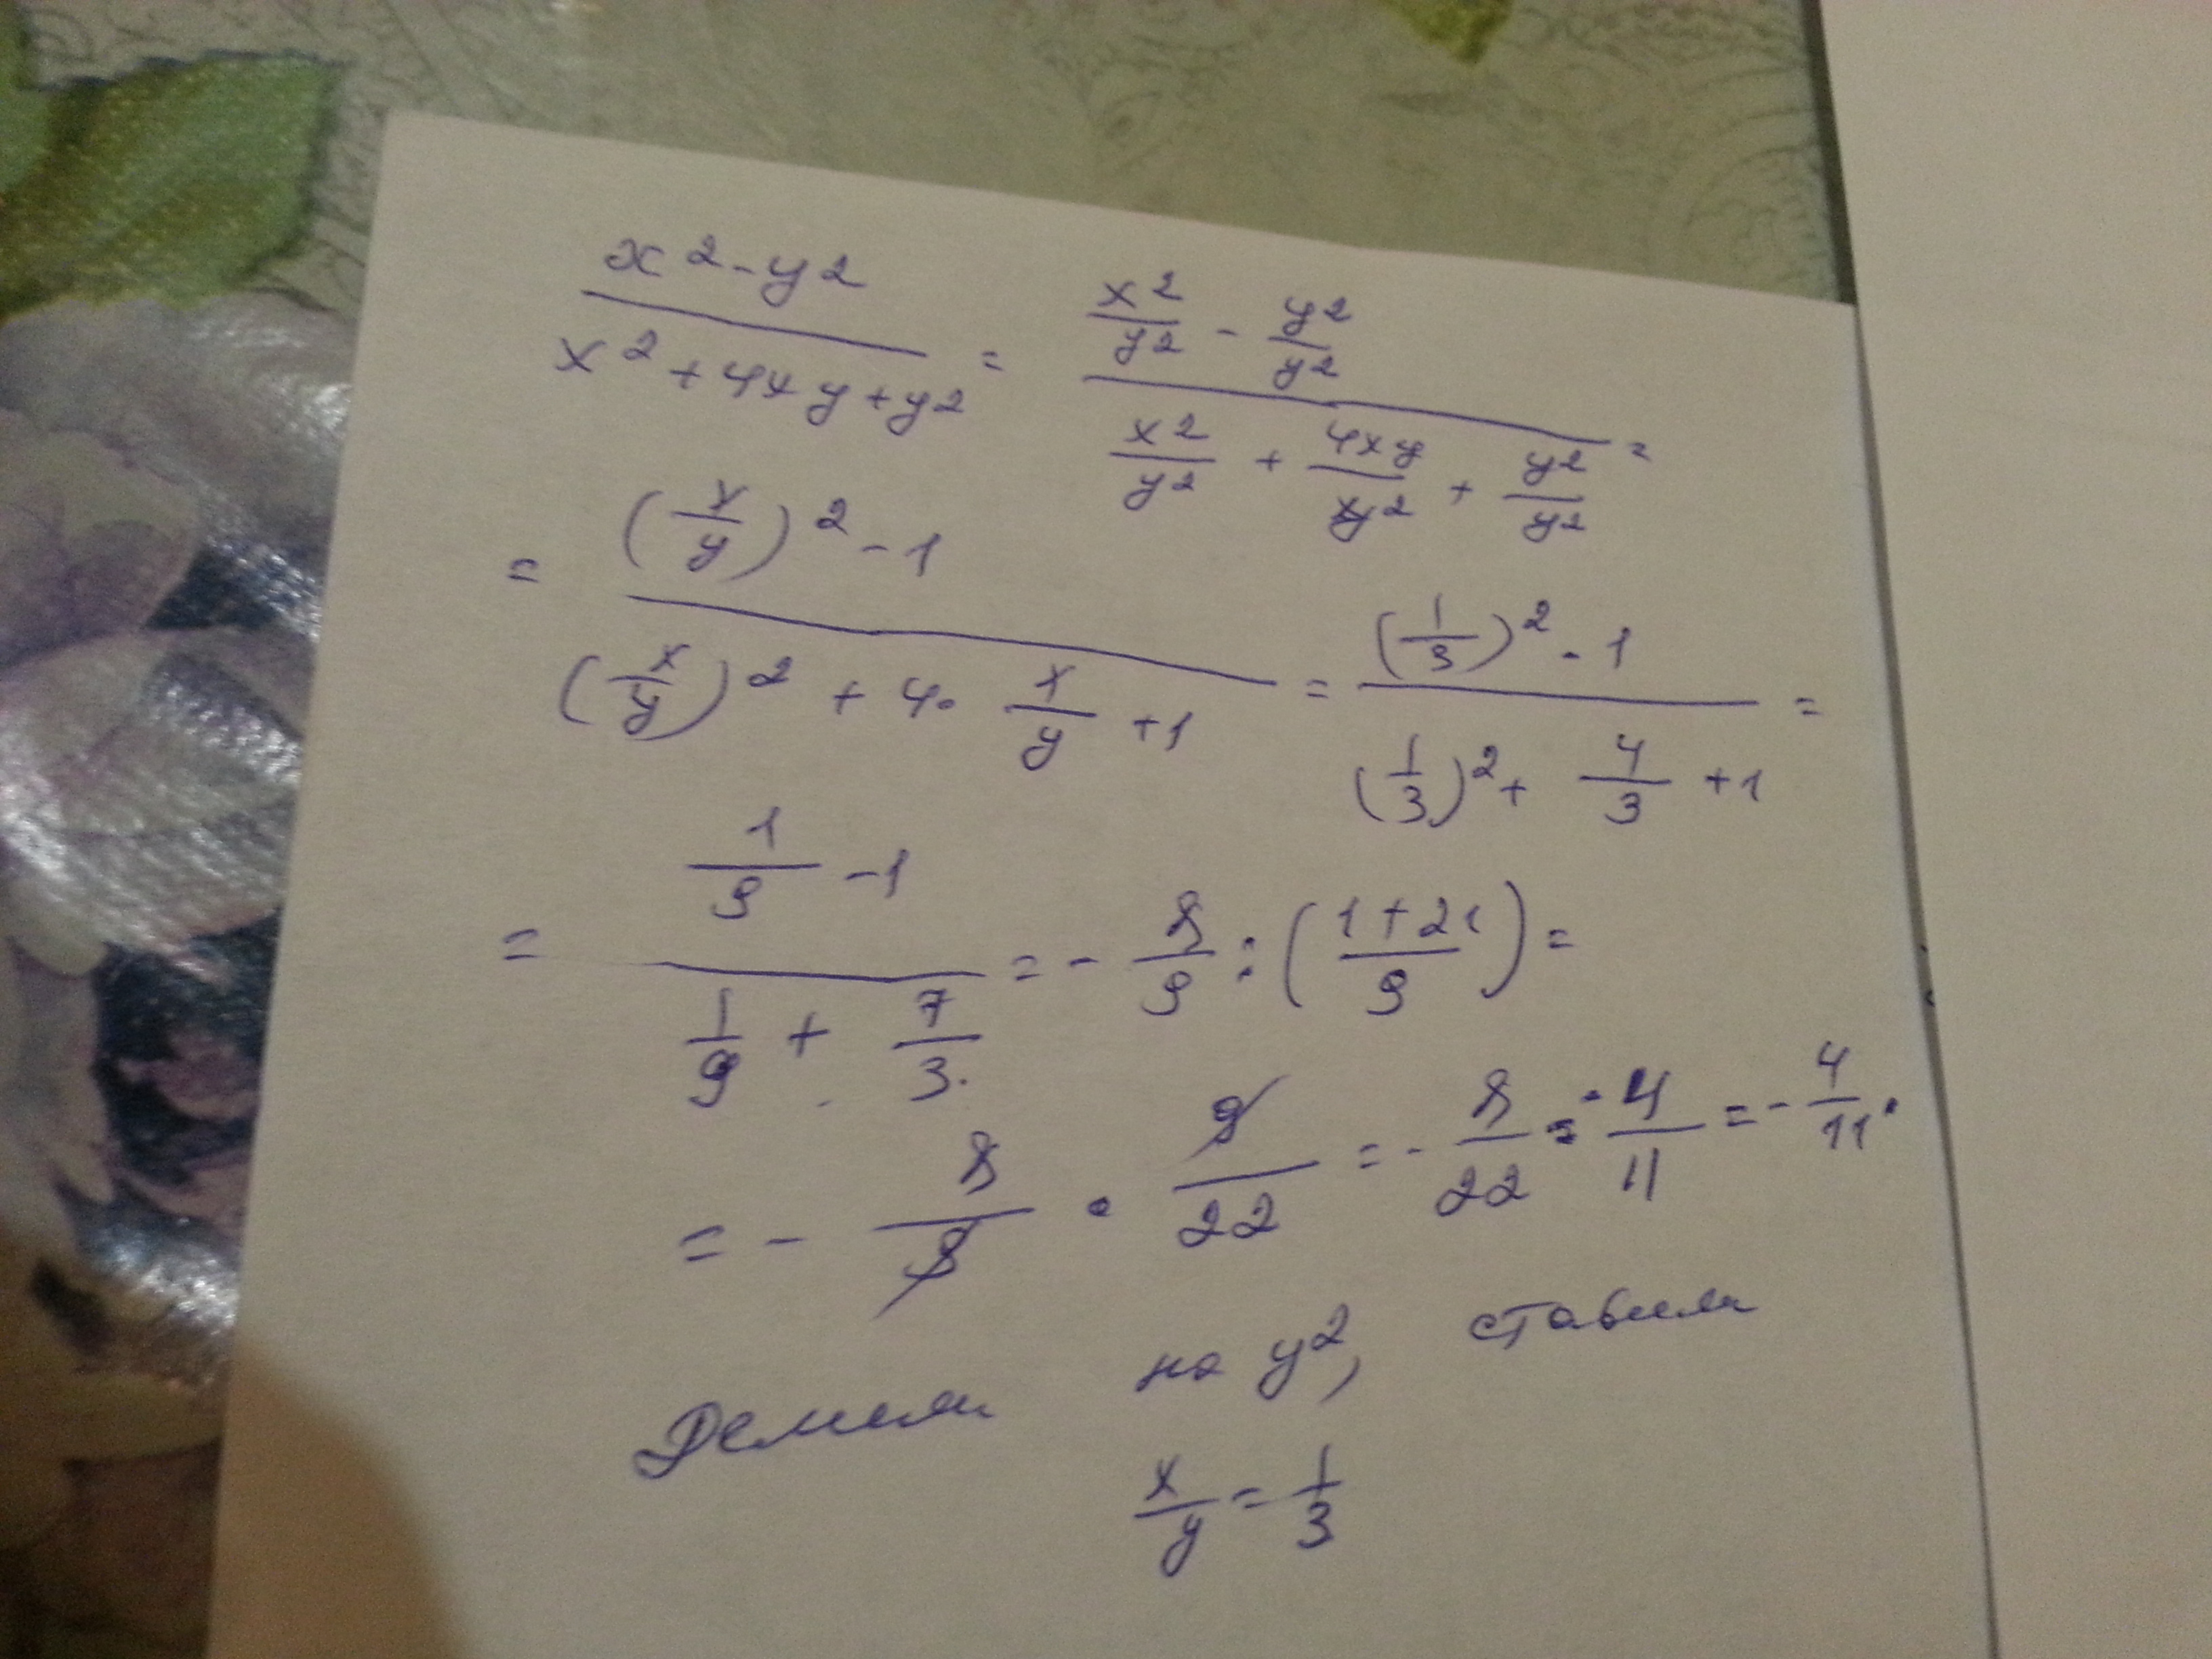 x² - y² / x² + 4xy + y² = (x²/y² - y²/y²) / (x²/y² + 4xy/y² + y²/y²) =
= ((x/y)² - 1) / ((x/y)² + 4· x/y + 1) = ((1/3)² - 1) / ((1/3)² + 4/3 + 1) =
= (1/9 - 1) / (1/9 + 7/3) = - 8/9 : (1 + 21 / 9) =
= - 8/9 · 9/22 = - 8/22 = - 4/11 = - 4/11.
Делим на y², ставим
x/y = 1/3